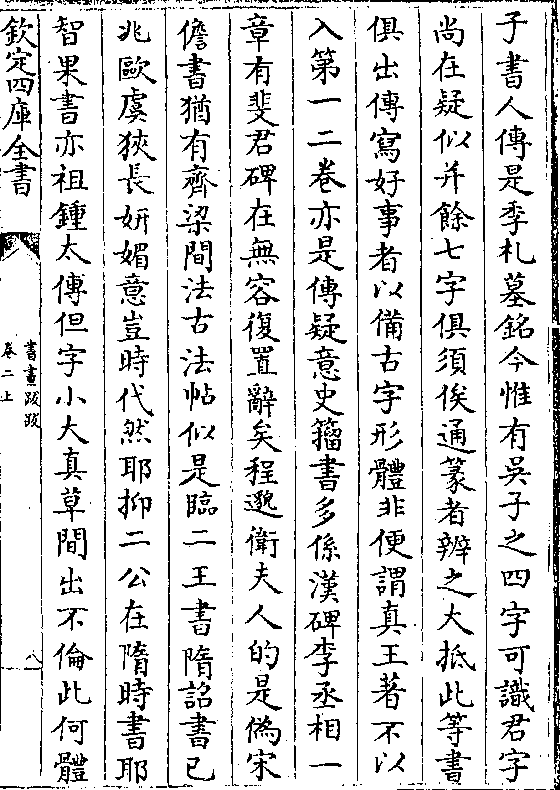 子書人傳是季札墓銘今惟有吳子之四字可識君字
尚在疑似并餘七字俱須俟通篆者辨之大抵此等書
俱出傳寫好事者以備古字形體非便謂真王著不以
入第一二卷亦是傳疑意史籀書多係漢碑李丞相一
章有斐君碑在無容復置辭矣程邈衛夫人的是偽宋
儋書猶有齊梁間法古法帖似是臨二王書隋詔書已
兆歐虞狹長妍媚意豈時代然耶抑二公在隋時書耶
智果書亦祖鍾太傅但字小大真草間出不倫此何體
欽定四庫全書
書畫跋跋
卷二上
八